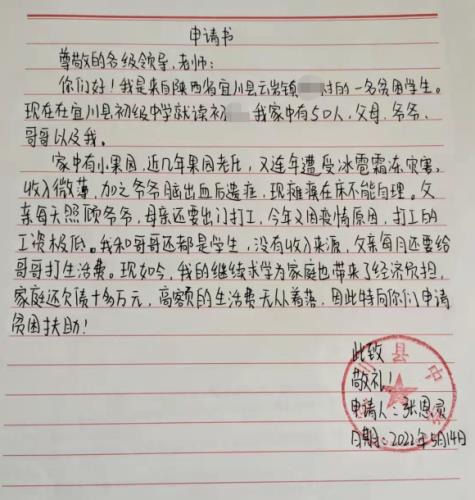 申请书
尊敬的各级领导、老师:
你们好!我是来自陕西省宜川县云岩镇 村的一名贫困学生。
现在在宜川县初级中学就读初 我家中有50人,父母、爷爷、
哥哥以及我。
家中有小果园,近几年果园老化,又连年遭受冰雹霜冻灾害,
收入微薄,加之爷爷脑出血后遗症,现瘫痪在床不能自理。父
亲每天照顾爷爷,母亲还要出门打工,今年又因疫情原因,打工的
工资极低。我和哥哥还都是学生,没有收入来源,父亲每月还要给
哥哥打生活费。现如今,我的继续求学为家庭也带来了经济负担,
家庭还欠债十多万元,高额的生活费无从着落,因此特向你们申请
贫困扶助!
此致
敬礼!
申请人:张恩灵
日期:2022年5月14日
川县中